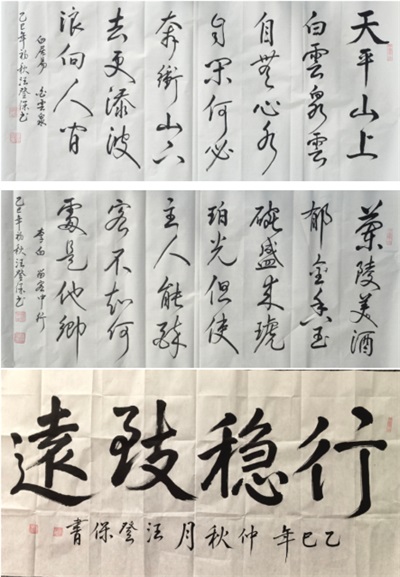 天平山上
白雲泉雲
自無心水
自闲何必
奔衝山下
去更添波
浪向人间
白居易 白雲泉
乙巳年初秋汪登保书
蘭陵美酒
郁金香玉
碗盛来琥
珀光但使
主人能醉
客不知何
處是他鄉
李白 客中行
乙巳年初秋汪登保书
行稳致遠
乙巳年仲秋月汪登保書